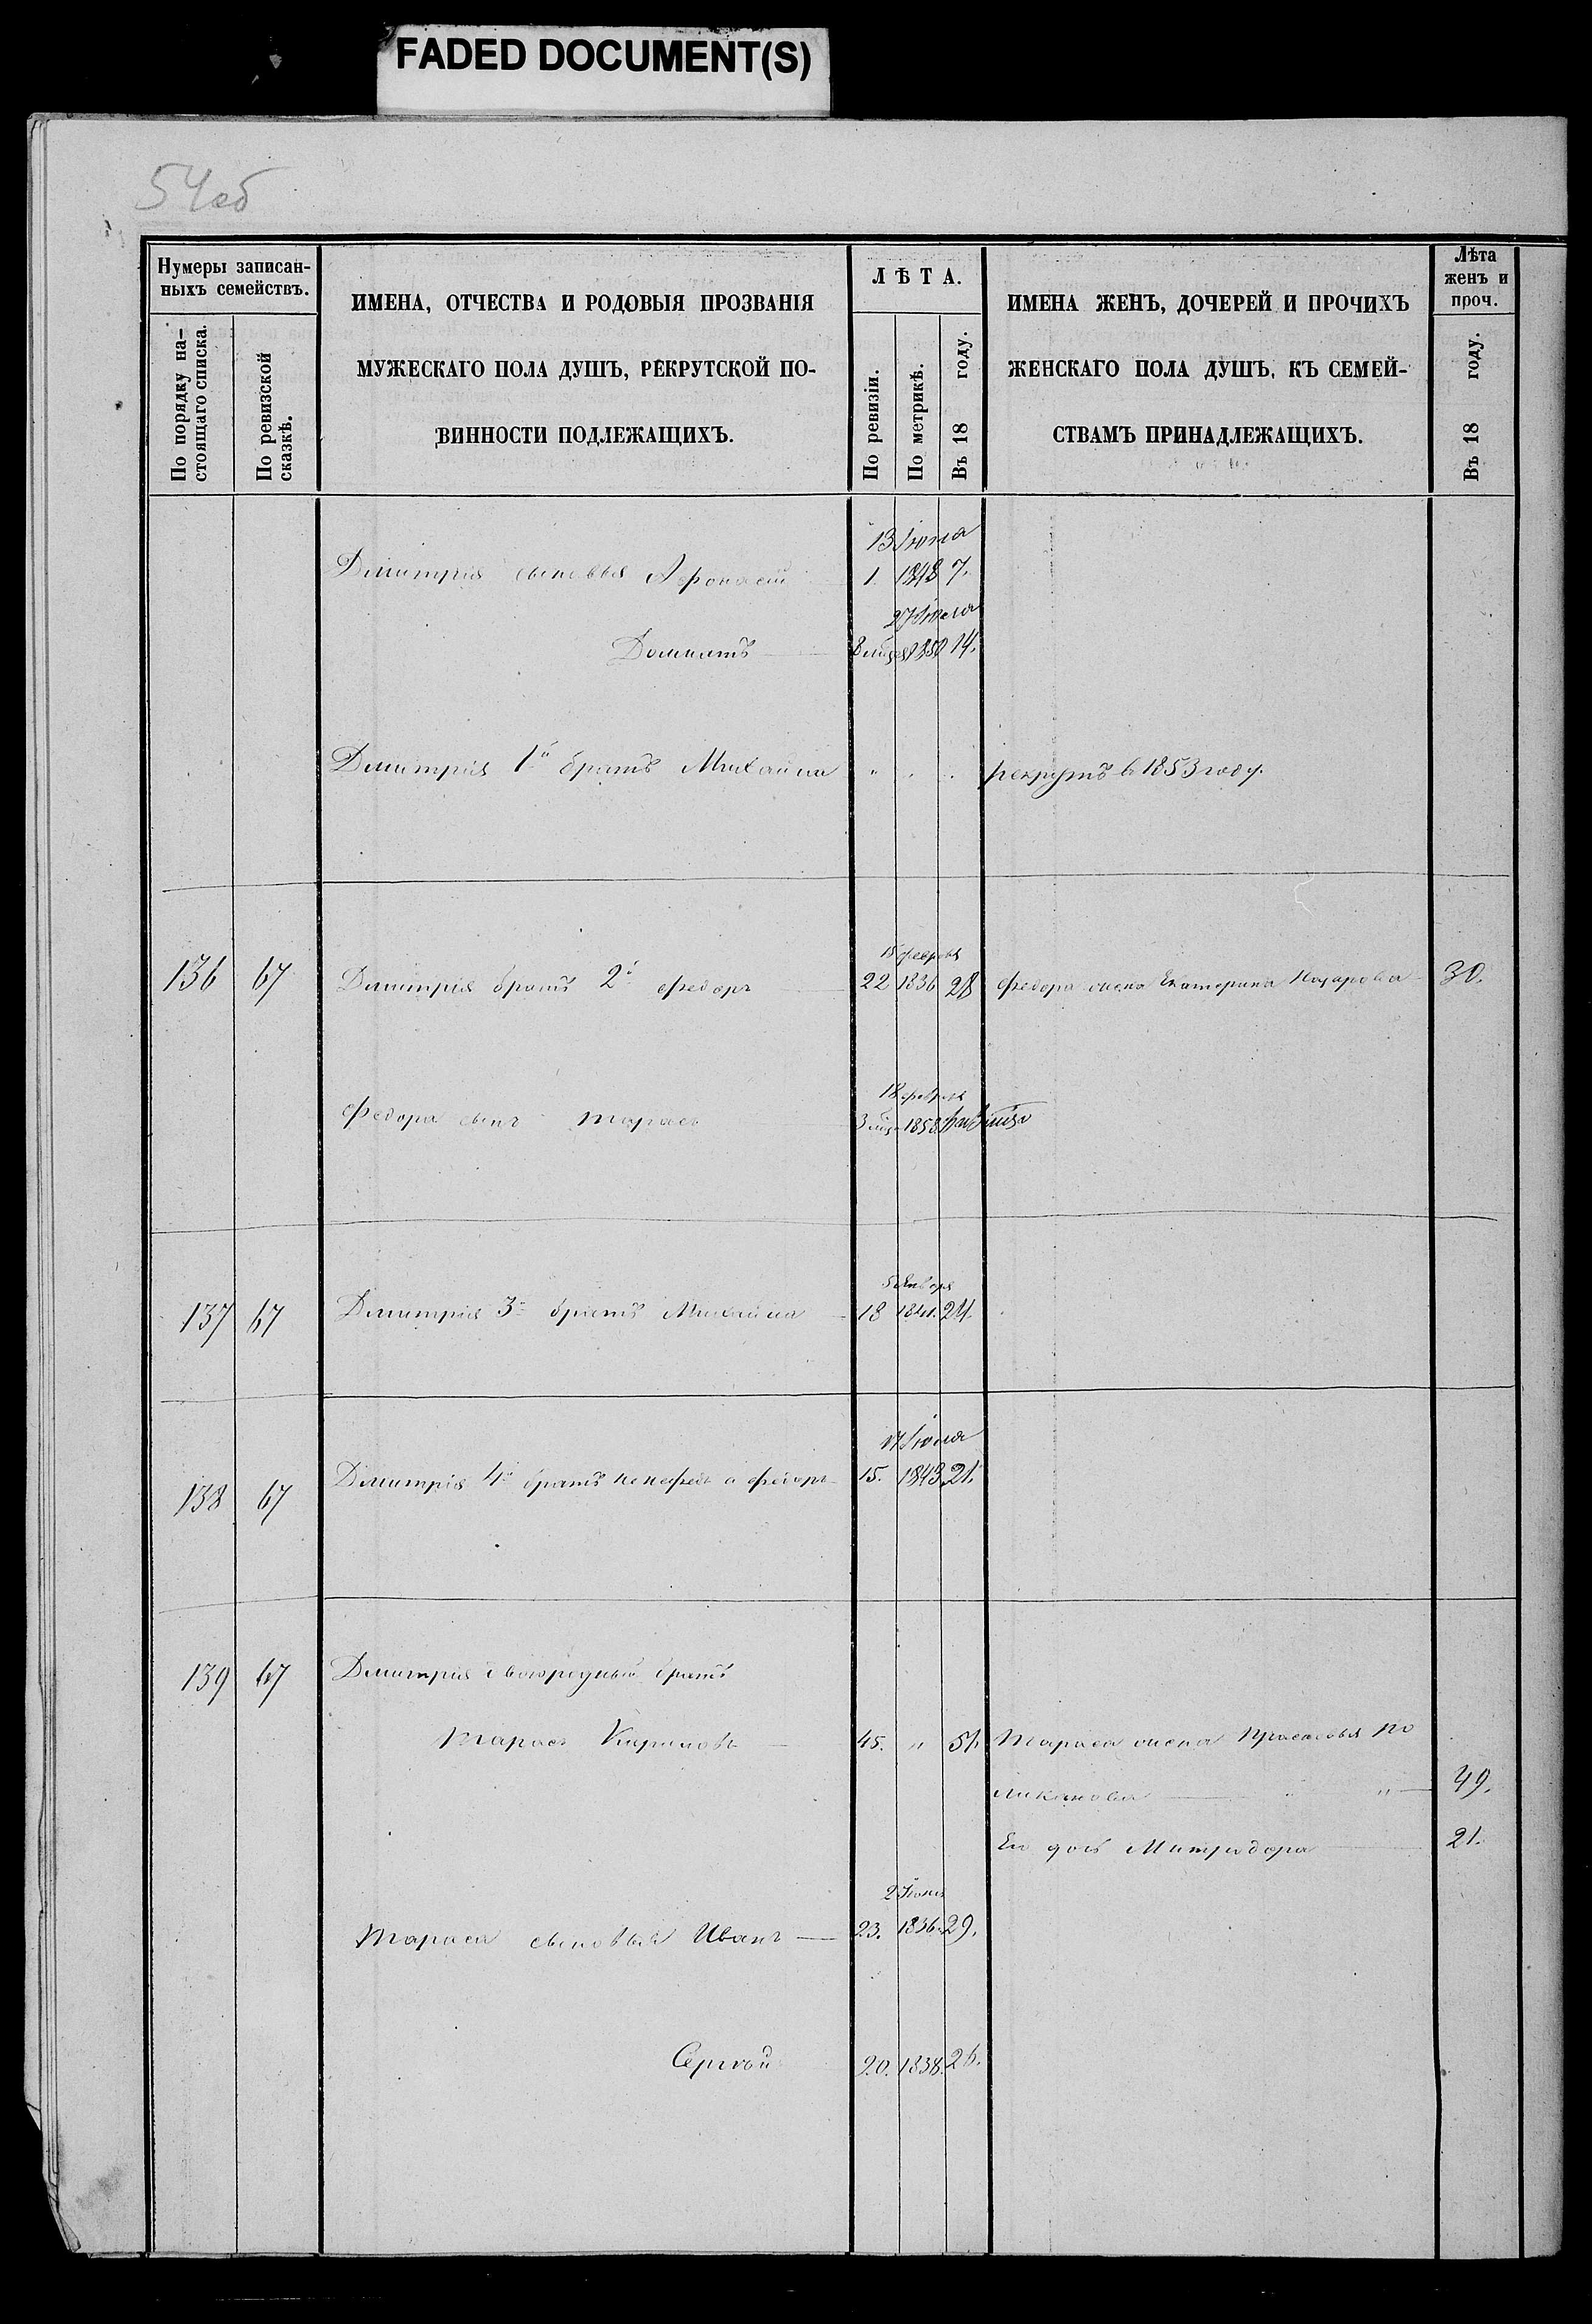 FADED DOCUMENT(S)
54об
Нумеры записан-
ныхъ семействъ.
По порядку на-
стоящаго списка.
По ревизской
сказкѣ.
ИМЕНА, ОТЧЕСТВА И РОДОВЫЯ ПРОЗВАНІЯ
МУЖЕСКАГО ПОЛА ДУШЪ, РЕКРУТСКОЙ ПО-
ВИННОСТИ ПОДЛЕЖАЩИХЪ.
ЛѢТА.
По ревизіи.
По метрикѣ.
Въ 18 году.
ИМЕНА ЖЕНЪ, ДОЧЕРЕЙ И ПРОЧИХЪ
ЖЕНСКАГО ПОЛА ДУШЪ, КЪ СЕМЕЙ-
СТВАМЪ ПРИНАДЛЕЖАЩИХЪ.
Лѣта
женъ и
проч.
Въ 18 году.
13 Іюня
Дмитрія сыновья Афонасій 1. 1848 7.
27 Іюля
14.
Дмитрія 1й братъ Михайла " " " рекрутъ в 1853 году.
15 февраля
136 67 Дмитрія братъ 2й Федоръ 22 1836 28 Федора жена Екатерина Назарова 30.
18 февраля
Федора сынъ Тарасъ 1858
5 Января
137 67 Дмитрія 3й братъ Михайла 18 1841. 24.
17 Іюля
138 67 Дмитрія 4й братъ а Федоръ 15. 1843. 21.
139 67 Дмитрія двоюродный братъ
Тарасъ Кириловъ 45. " 51. Тараса жена Прасковья По
ликанова " " 49.
Ея дочь Митродора 21.
2 Іюня
Тараса сыновья Иванъ 23. 1836. 29.
Сергѣй 20. 1838. 26.